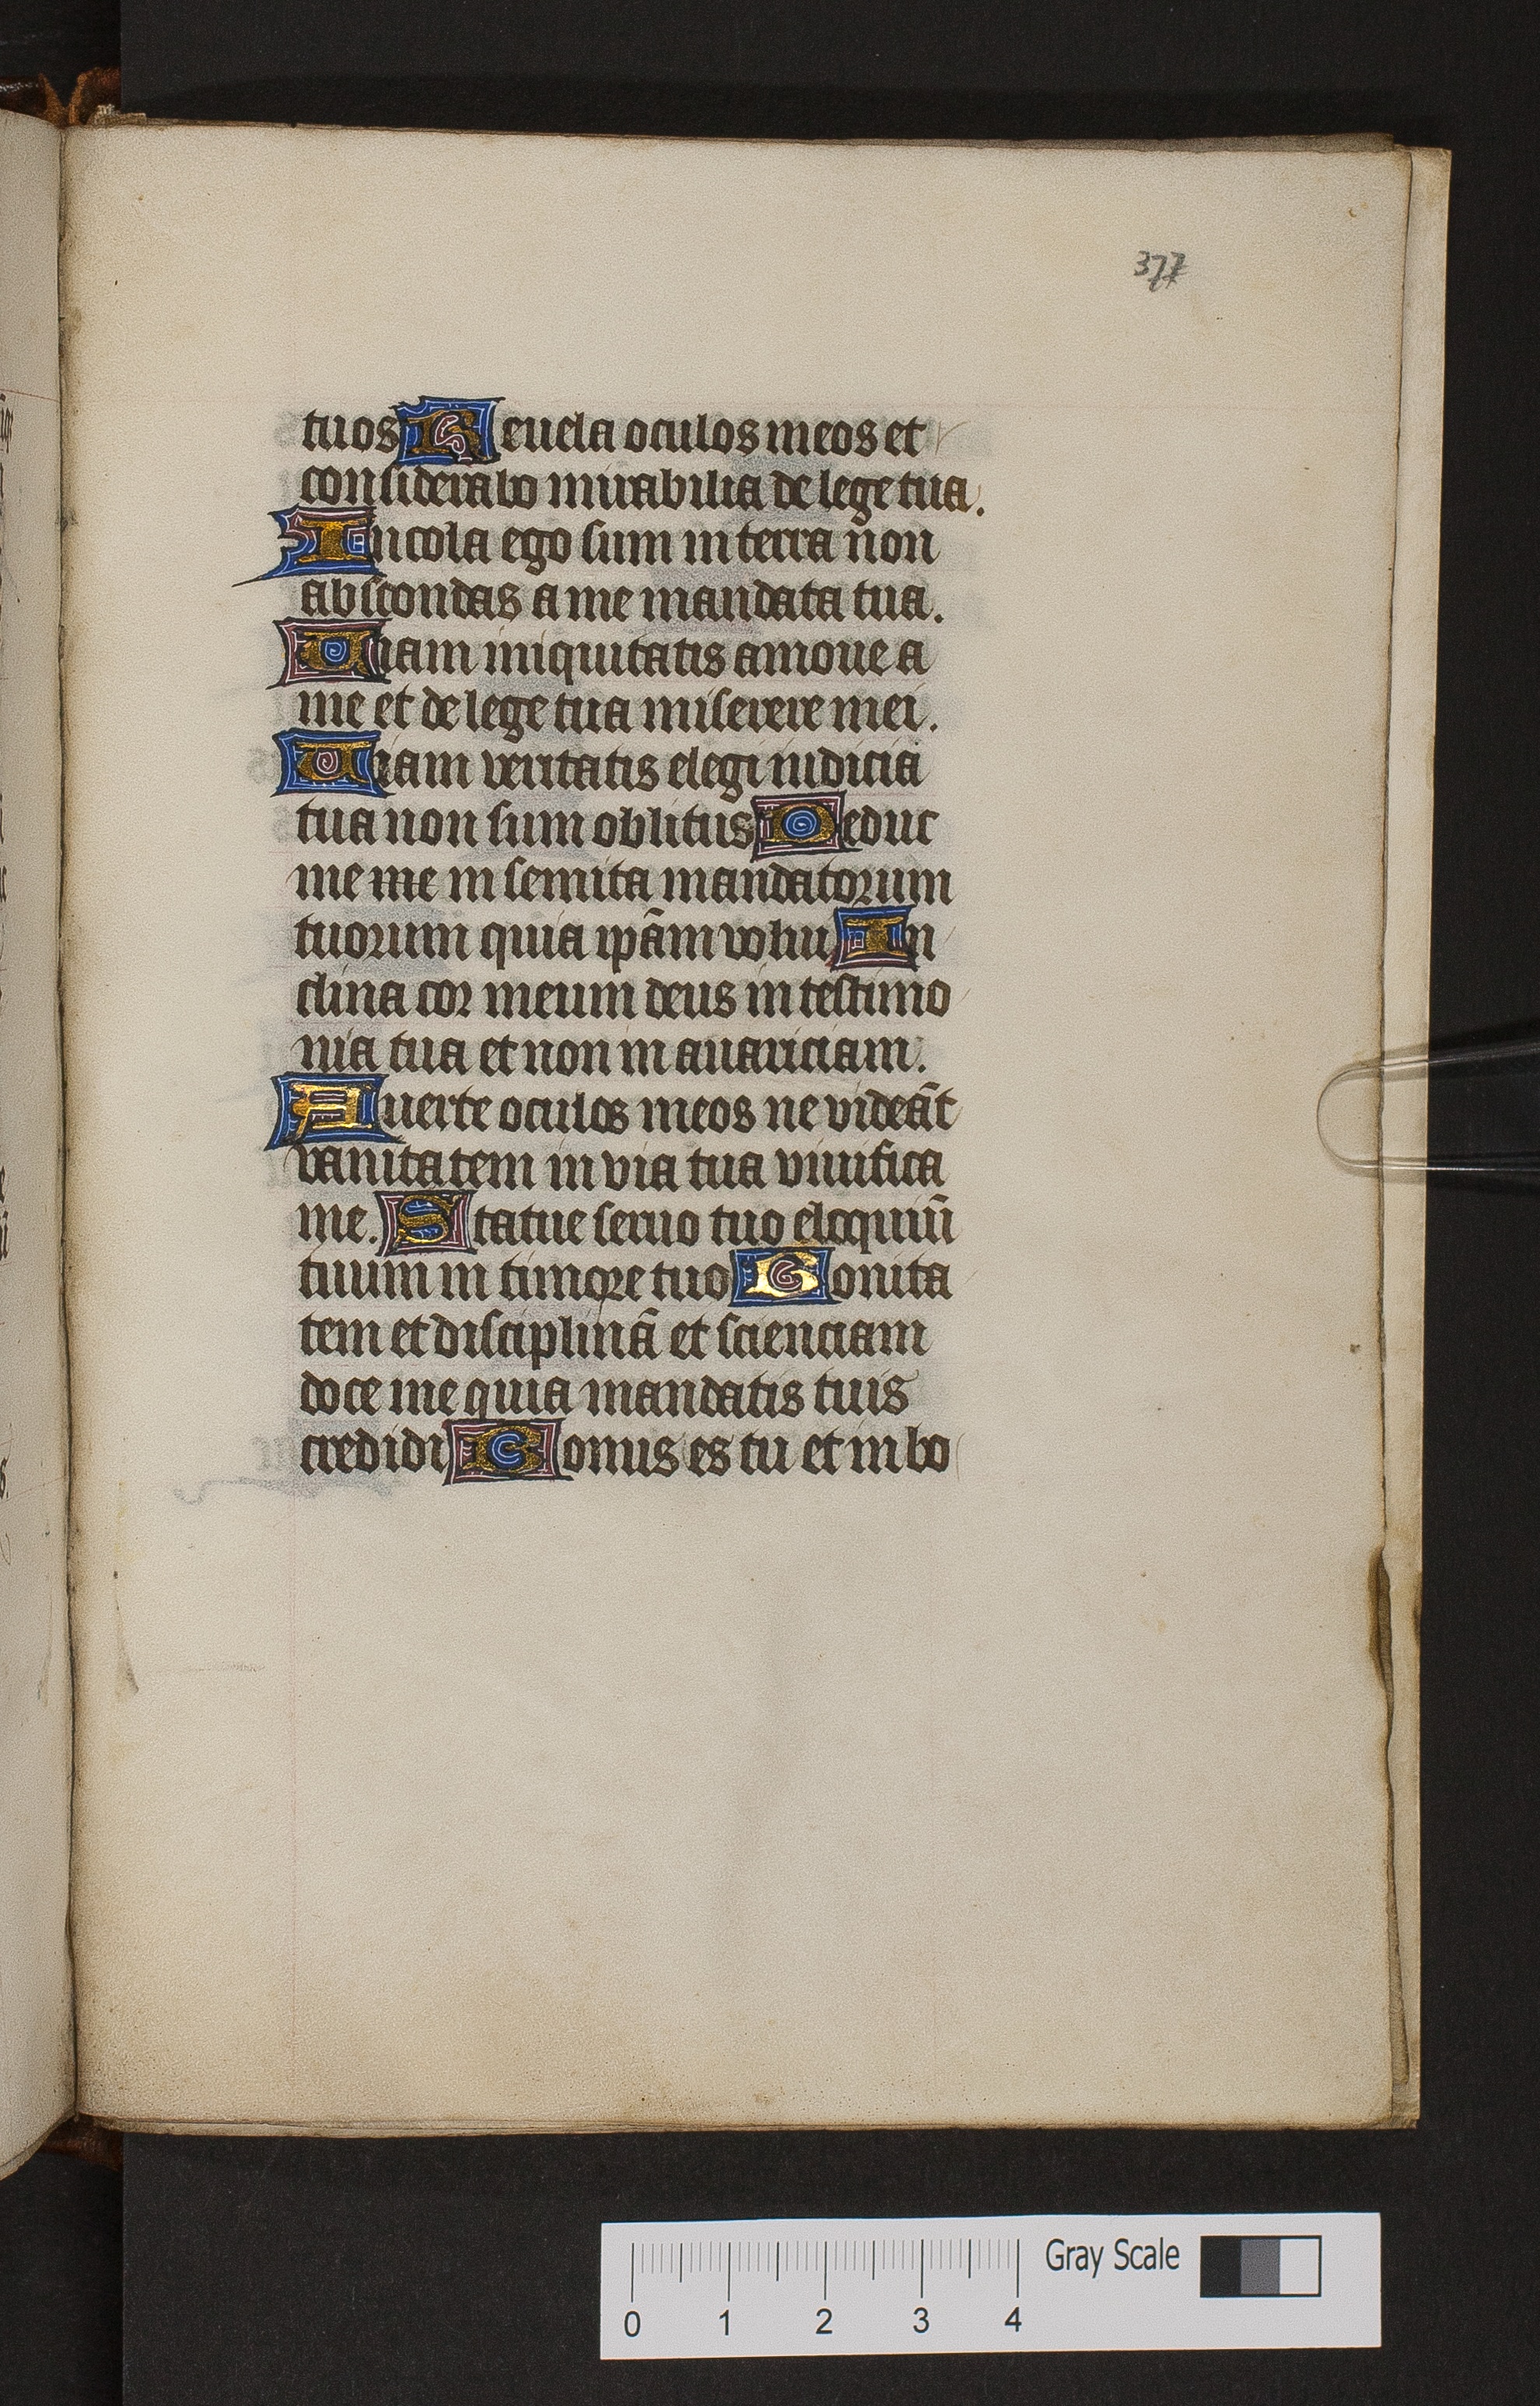 377
tuos Reuela oculos meos et
considerabo mirabilia de lege tua.
Incola ego sum in terra non
abscondas a me mandata tua.
Uiam iniquitatis amoue a
me et de lege tua miserere mei.
Uiam veritatis elegi iudicia
tua non sum oblitus Deduc
me me in semita mandatorum
tuorum quia ip̄am volui In
clina cor meum deus in testimo
nia tua et non in auariciam.
Auerte oculos meos ne videāt
vanitatem in via tua viuifica
me. Statue seruo tuo eloquiū
tuum in timore tuo Bonita
tem et disciplinā et scienciam
doce me quia mandatis tuis
credidi Bonus es tu et in bo
Gray Scale
0 1 2 3 4